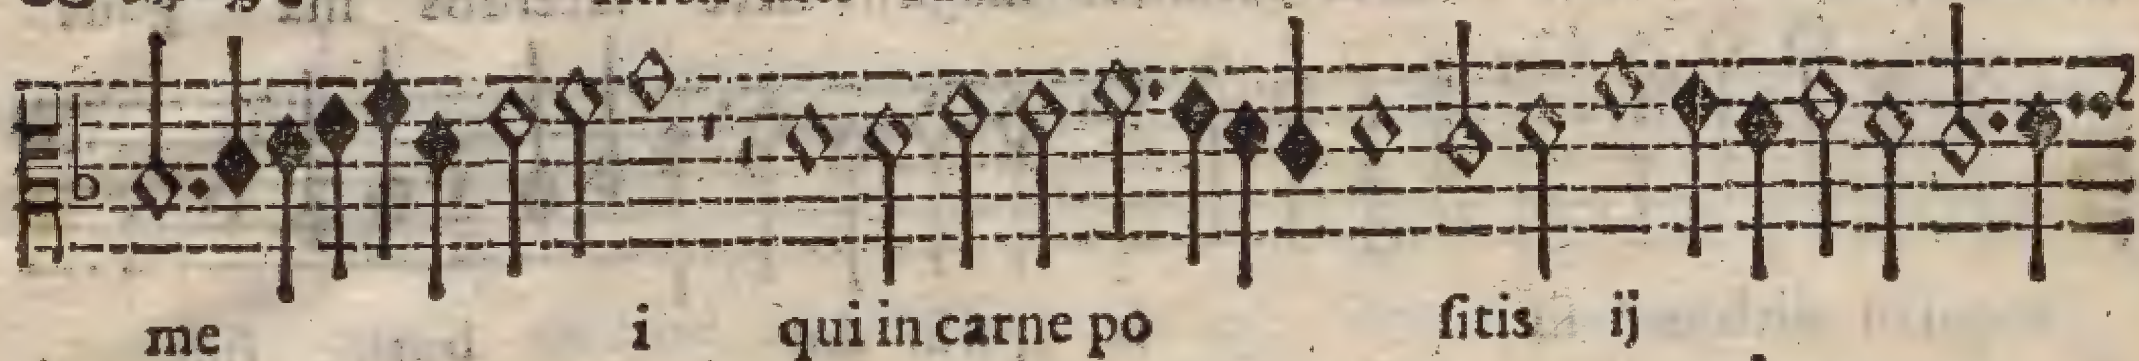 me i qui in carne po ſitis ij